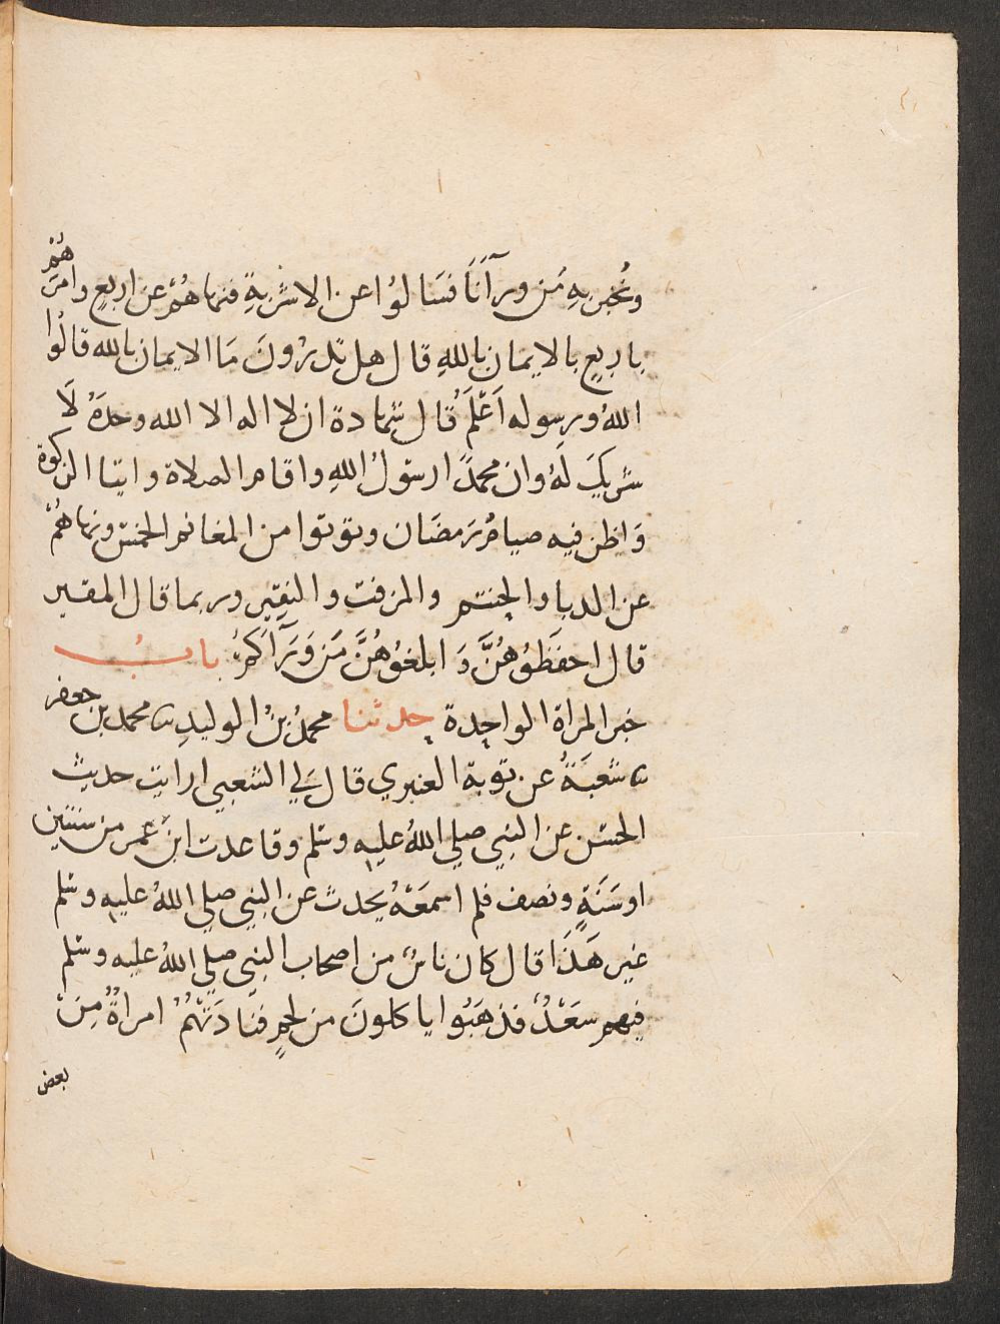 ونُخبر بِهِ مَن ورآنَا فسَالوُا عن الاشربةِ فنهاهُمْ عن اربعٍ وامرهُمْ
باربعٍ بالايمان باللهِ قال هل تدرُونَ مَا الايمان بالله قالُوا
اللهُ ورسوله اَعْلَمُ قال شهادة ان لا اله الا الله وحدَهُ لَا
شريكَ لَهُ وان محمدًا رسُولُ اللهِ واقام الصلاة وايتا الزكوة
وَاظن فيه صيامُ رَمضَان وتوتوا من المغانم الخمسَ ونهاهُمْ
عن الدبا والحنتم والمزفت والنقير وربما قال المقير
قال احفَظُوهُنَّ وَابلغُوهُنَّ مَن وَرَآكُمْ بابُ
خبر المراة الواحدة حدثنا محمدُ بنُ الوليدِ ثنا محمد بن جعفر
ثنا شعبَةُ عن توبة العنبري قال لَي الشعبي ارايت حديث
الحسَن عن النبي صلي اللهُ عليه وسَلم وقاعدت ابنَ عُمر من سنتين
اوسَنَةٍ ونصف فلم اسمعَهُ يُحدث عن النبي صلي اللهُ عليه وسَلم
غير هَذَا قال كان ناسٌ من اصحاب النبي صلي اللهُ عليه وسَلم
فيهم سَعْدٌ فذهَبُوا ياكلونَ من لحمٍ فنَادَتْهُمْ امراةٌ مِنْ
بعض